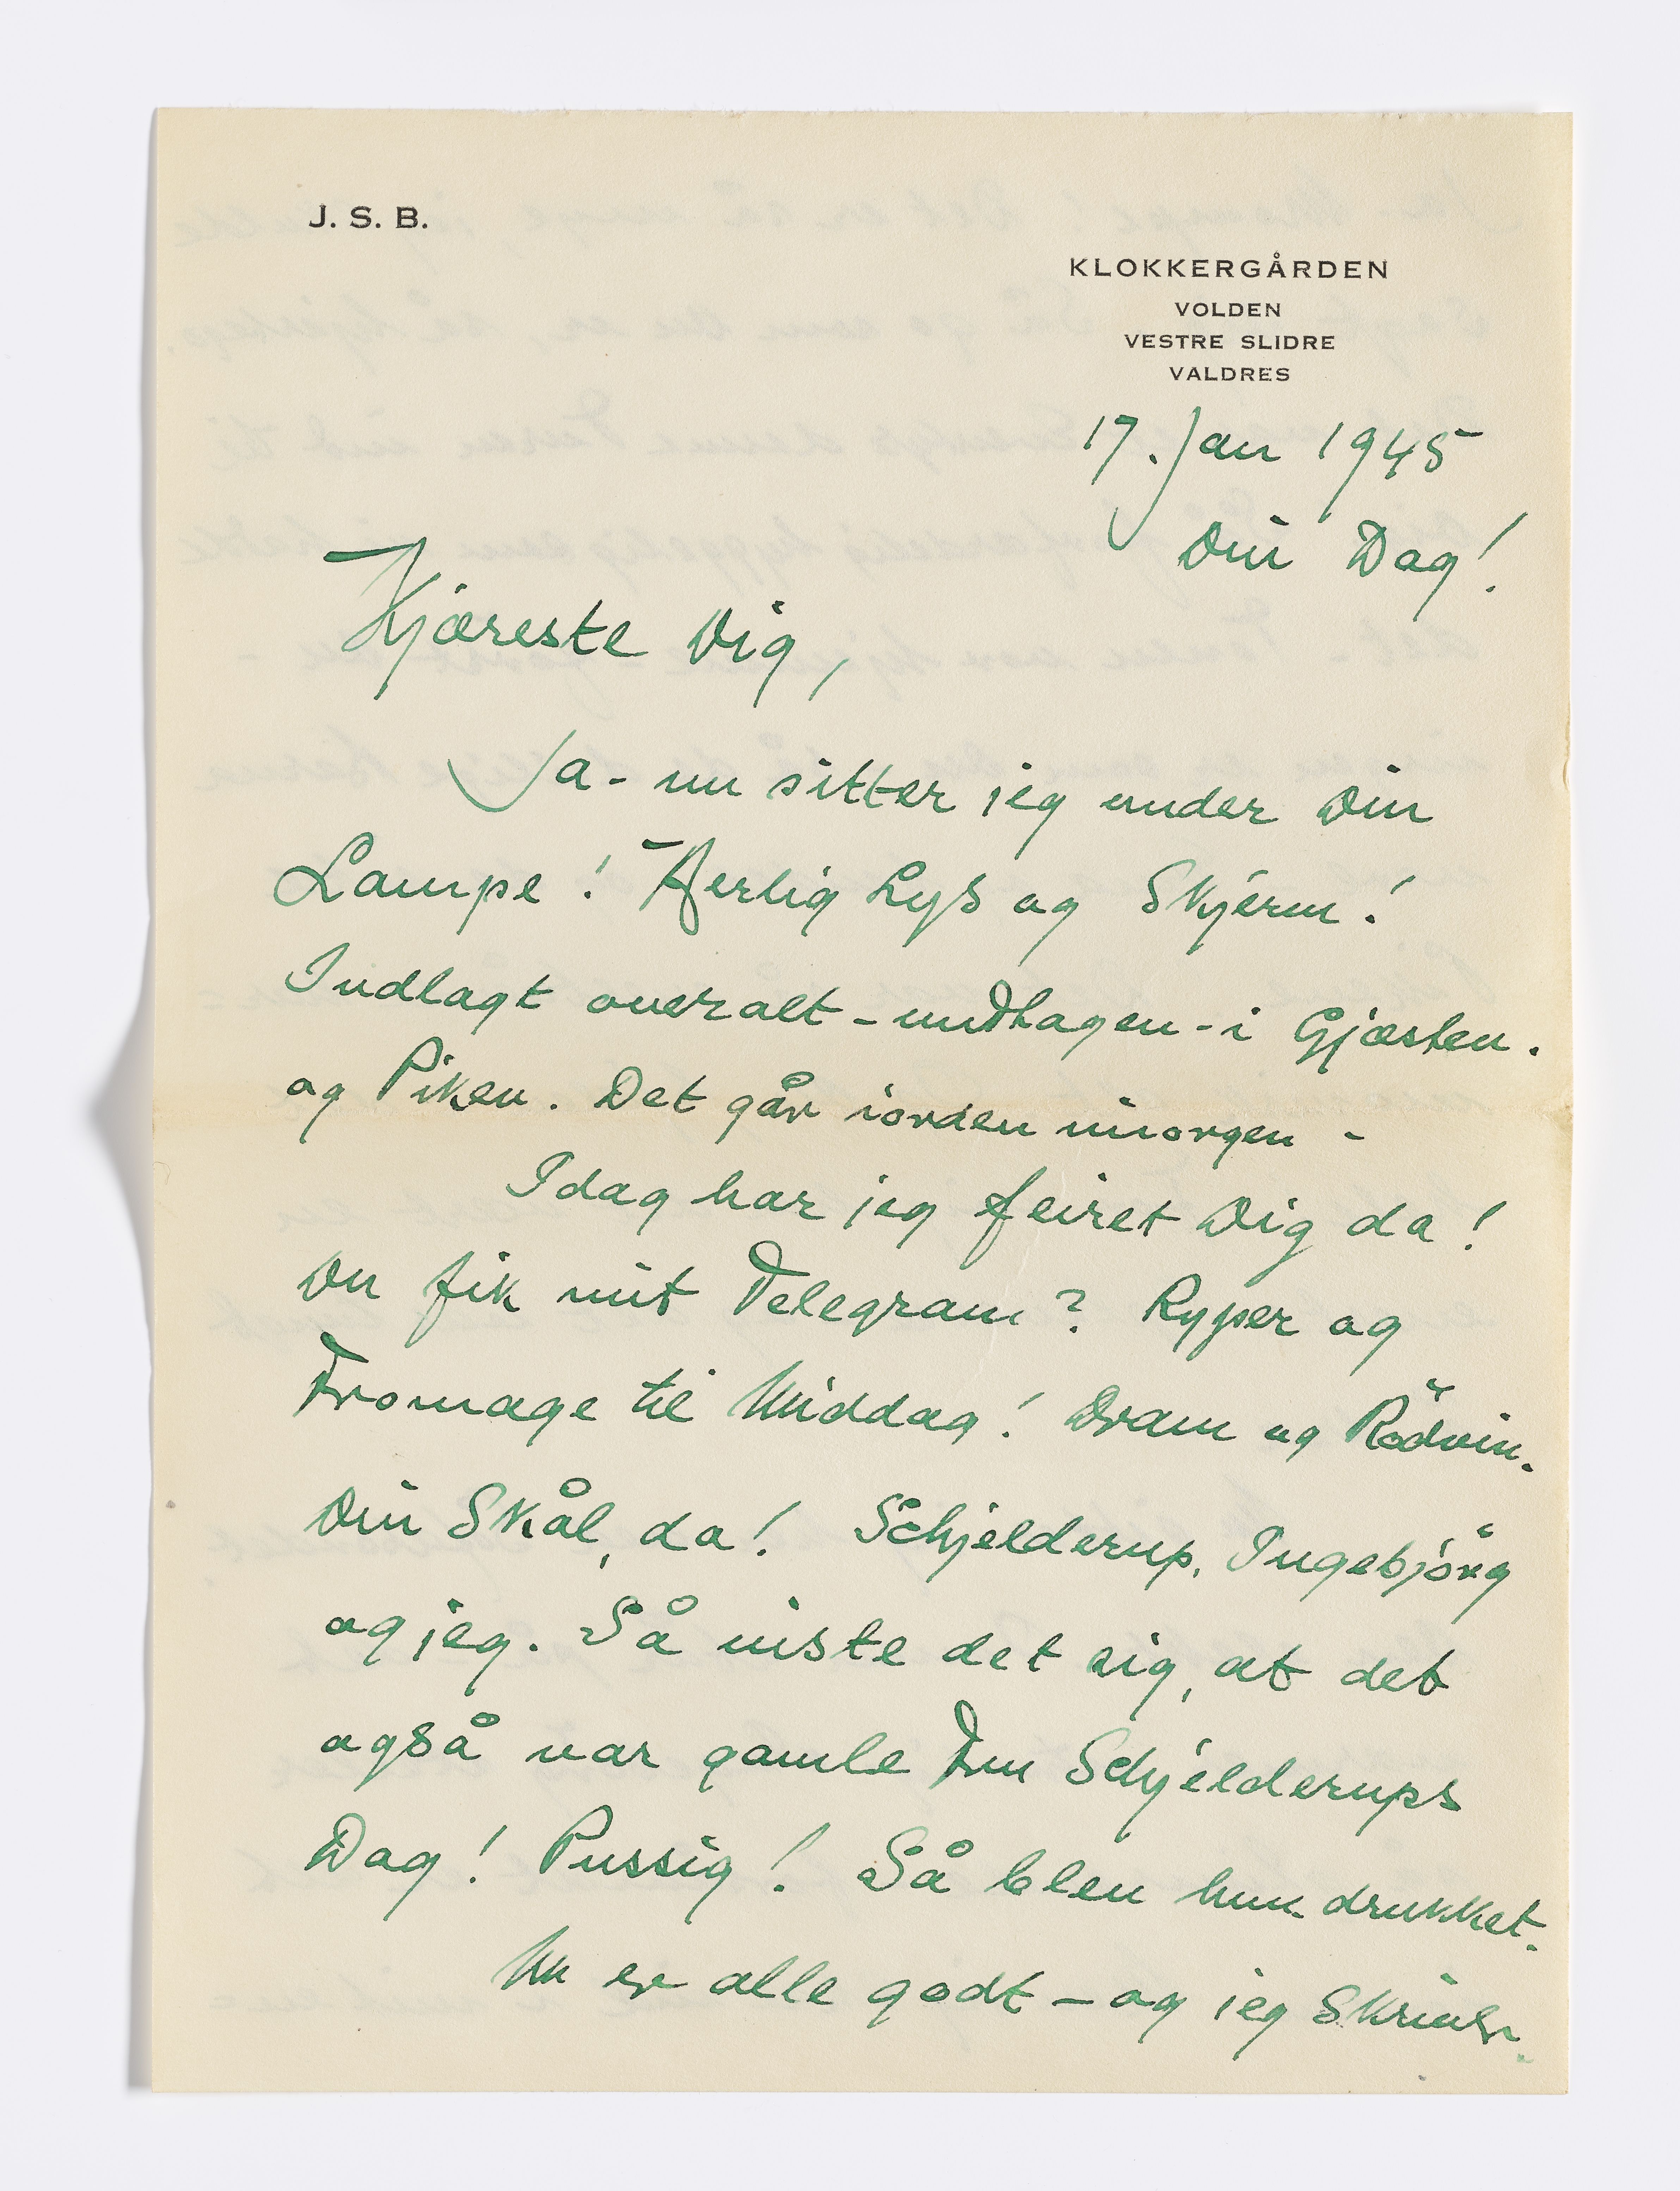 J. S. B.
KLOKKERGÅRDEN
VOLDEN
VESTRE SLIDRE
VALDRES
17. Jan 1945
Din Dag!
Kjæreste Dig,
Ja - nu sitter jeg under Din
Lampe! Herlig Lys og Skjérm!
Indlagt overalt - undtagen - i Gjæsten.
og Piken. Det går iorden imorgen -
Idag har jeg feiret Dig da!
Du fik mit Telegram? Ryper og
Fromage til Middag! Dram og Rödvin.
Din Skål, da! Schjelderup, Ingebjörg
og jeg. Så viste det sig, at det
også var gamle Fru Schjelderups
Dag! Pussig! Så blev hun drukket.
Nu er alle godt - og jeg Skriver.